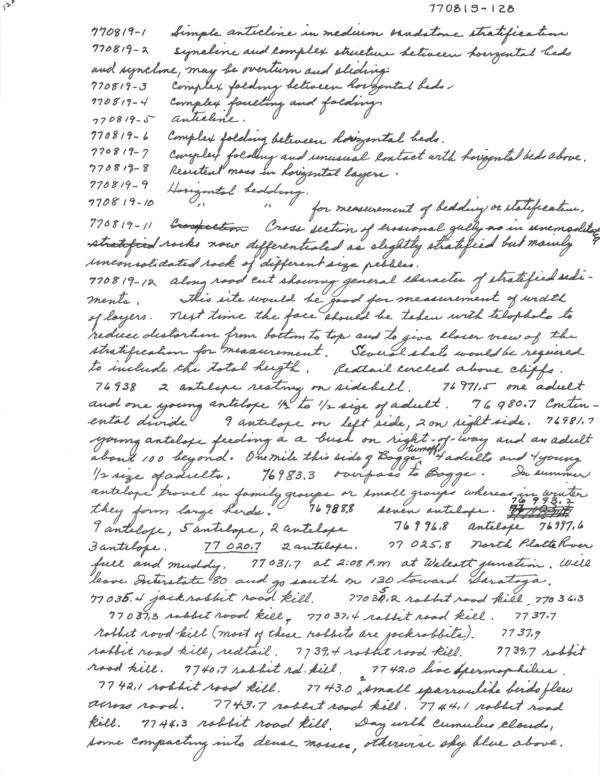 770819-128
770819-1 Simple anticline in medium sandstone stratification
770819-2 syncline and complex structure between horizontal beds
and syncline, may be overturn and sliding.
770819-3 Complex folding between horizontal beds.
770819-4 Complex faulting and folding
770819-5 Anticline.
770819-6 Complex folding between horizontal beds.
770819-7 Complex folding and unusual contact with horizontal beds above.
770819-8 Resistent mass in horizontal layers.
770819-9 Horizontal bedding.
770819-10 " " for measurement of bedding or statification.
770819-11 Cross section of erosional gully as in
stratified rocks now differentiated as slightly stratified but mainly
unconsolidated rock of different size pebbles.
770819-12 along road cut showing general character of stratified sedi-
ments. This site would be good for measurement of width
of layers. Next time the face should be taken with telephoto to
reduce distortion from bottom to top and to give closer view of the
stratification for measurement. Several shots would be required
to include the total heigth. Redtail circled above cliffs.
76938 2 antelope resting on sidehill. 76971.5 one adult
and one young antelope 1/3 to 1/2 size of adult. 76980.7 Contin-
ental divide 9 antelope on left side, 2 on right side. 76981.7
young antelope feeding a a bush on right-of-way and an adult
about 100 beyond. One mile this side of Baggs turnoff, 4 adults and 4 young
1/2 size of adults. 76983.3 overpass to Baggs. In summer
antelope travel in family groups or small groups whereas in winter
they form large herds. 76988.8 seven antelope. 76993.2
9 antelope, 5 antelope, 2 antelope 76996.8 antelope 76997.6
3 antelope. 77020.7 2 antelope. 77025.8 North Platte River
full and muddy. 77031.7 at 2:08 P.M. at Walcott junction. Will
leave Interstate 80 and go south on 130 toward Saratoga.
77035.4 jackrabbit road kill. rabbit road kill. 77036.3
77037.3 rabbit road kill, 77037.4 rabbit road kill. 7737.7
rabbit road kill (most of these rabbits are jackrabbits). 7737.9
rabbit road kill, redtail. 7739.4 rabbit road kill. 7739.7 rabbit
road kill. 7740.7 rabbit rd. kill. 7742.0 live spermophilus.
7742.1 rabbit road kill. 7743.0 2 small sparrowlike birds flew
across road. 7743.7 rabbit road kill. 7744.1 rabbit road
kill. 7744.3 rabbit road kill. Day with cumulus clouds,
some compacting into dense masses, otherwise sky blue above.